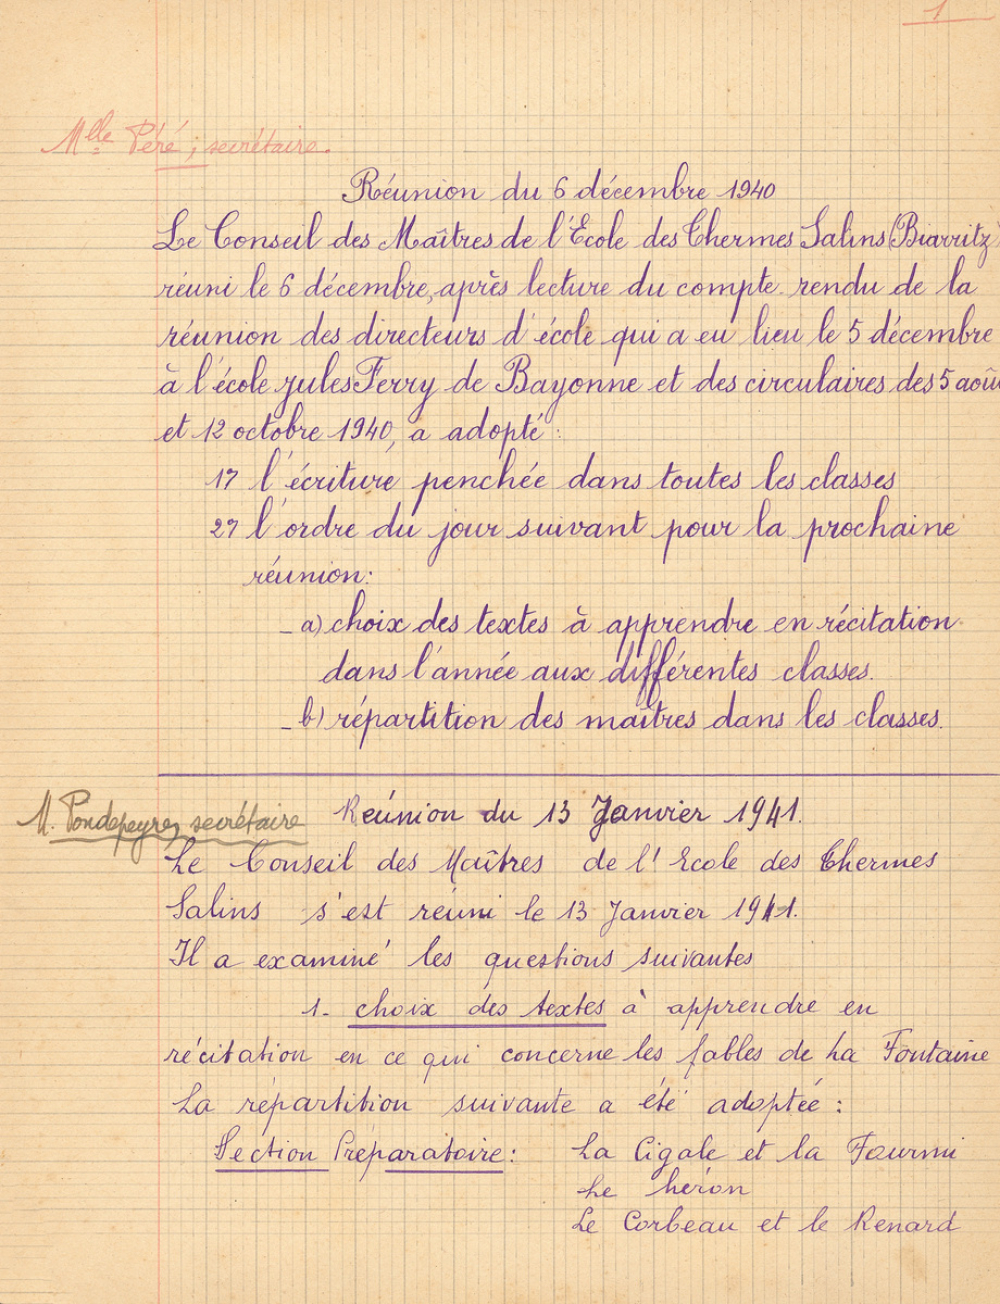 1
Mlle Péré, secrétaire.
Réunion du 6 décembre 1940
Le Conseil des Maîtres de l'École des Thermes Salins (Biarritz)
réuni le 6 décembre, après lecture du compte rendu de la
réunion des directeurs d'école qui a eu lieu le 5 décembre
à l'école Jules Ferry de Bayonne et des circulaires des 5 août
et 12 octobre 1940, a adopté :
1º l'écriture penchée dans toutes les classes
2º l'ordre du jour suivant pour la prochaine
réunion:
_ a) choix des textes à apprendre en récitation
dans l'année aux différentes classes.
_ b) répartition des maîtres dans les classes.
M. Pondepeyre, secrétaire
Reúnion du 13 Janvier 1941.
Le Conseil des Maîtres de l'Ecole des Thermes
Salins s'est réuni le 13 Janvier 1941.
Il a examiné les questions suivantes
1- choix des textes à apprendre en
récitation en ce qui concerne les fables de La Fontaine
La répartition suivante a été adoptée :
Section Préparatoire : La Cigale et la Fourmi
Le héron
Le Corbeau et le Renard